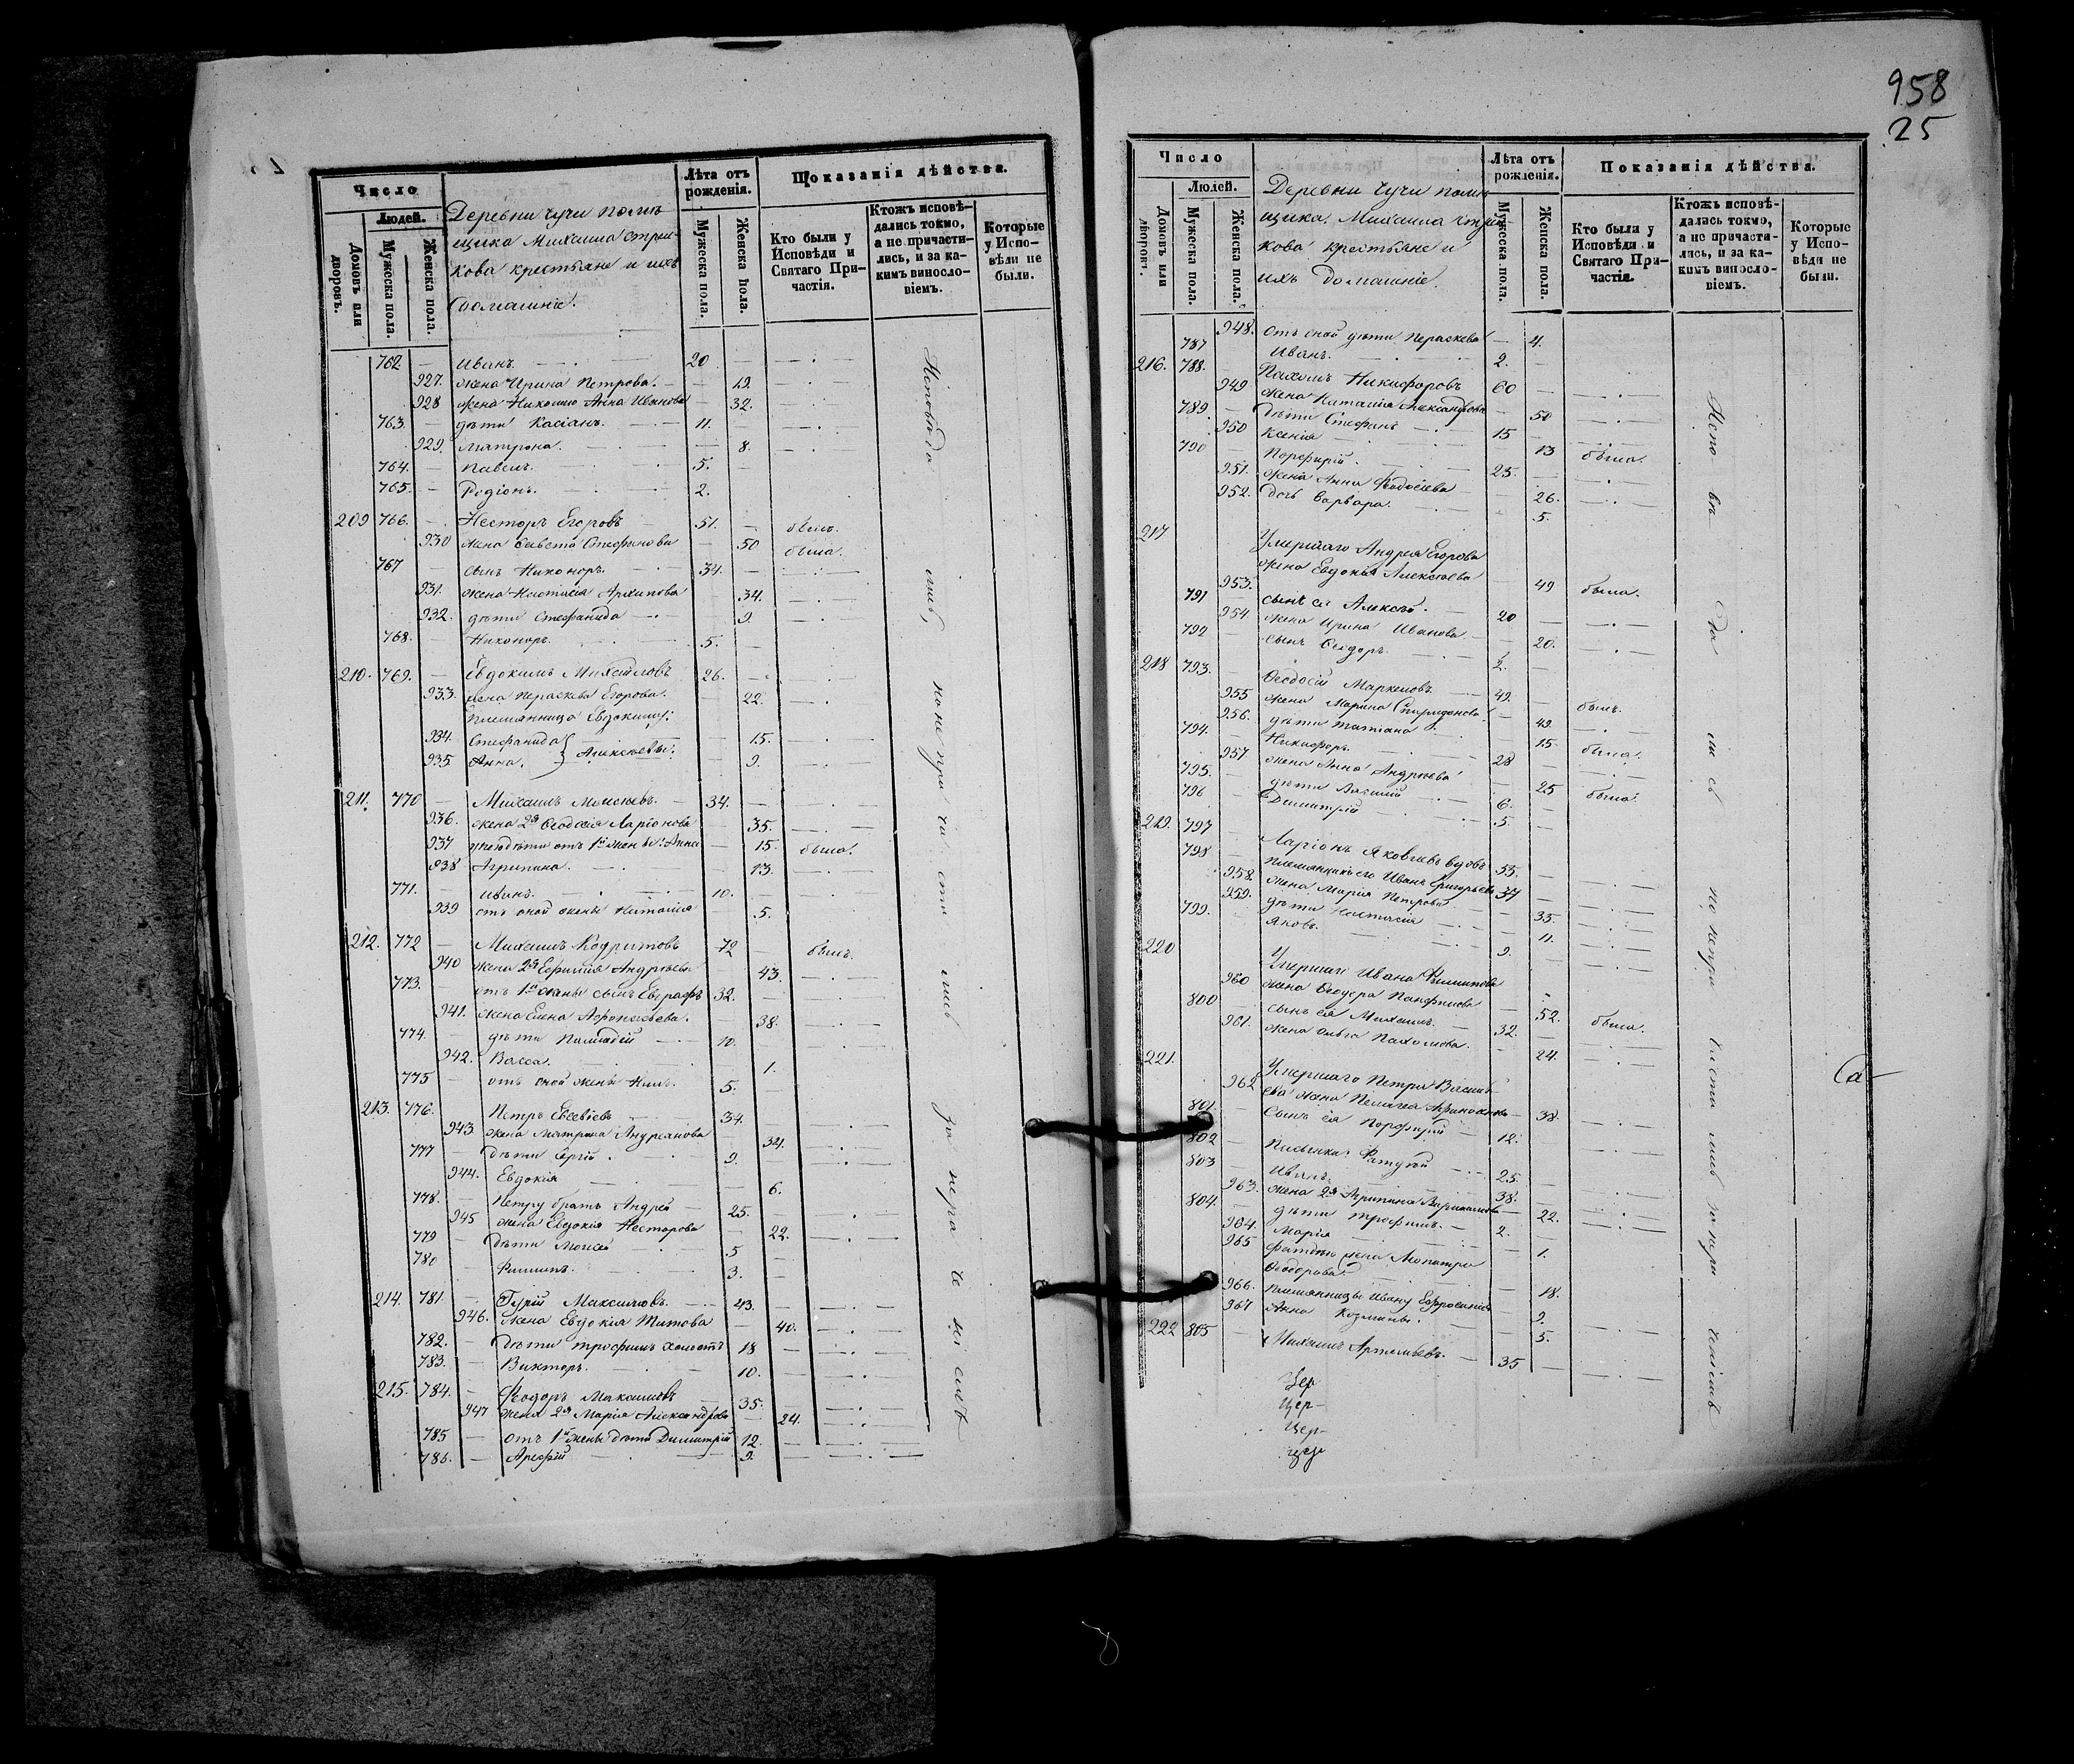 958
25
Число
Людей.
Домовъ или дворовъ.
Мужеска пола.
Женска пола.
Деревни Чучи помѣ
щика Михаила Стрѣл-
кова крестьяне и ихъ
домашніе.
Лѣта отъ рожденія.
Мужеска пола.
Женска пола.
Показанія дѣйства.
Кто были у Исповѣди и Святаго При-частія.
Ктожъ исповѣ-дались токмо, а не причасти-лись, и за ка-кимъ винословіемъ.
Которые у Испо-вѣди не были.
762. — Иванъ. — 20 —
927. жена Ирина Петрова. — 19.
928 жена Николая Анна Иванова — 32.
763. — дѣти Касіанъ. — 11. —
929. Матрона. — 8.
764. — Павелъ. — 5. —
765. — Родіонъ. — 2.
209 766. — Несторъ Егоровъ — 51. — былъ.
930 жена Елисавета Стефанова — 50 была.
767 — сынъ Никоноръ. — 34. —
931. жена Настасія Архипова 34.
932. дѣти Стефанида — 9.
768. — Никоноръ. 5. —
210. 769. — Евдокимъ Михайловъ 26. —
933. жена Параскева Егорова. — 22.
племянницы Евдокиму:
934. Стефанида } Алексѣевы. — 15.
935. Анна. — 9.
211. 770 — Михаилъ Моисѣевъ. — 34. —
936. жена 2я Ѳеодосія Ларіонова 35.
937 дѣти отъ 1й жены: Анна — 15. была.
938 Агрипина. — 13.
771. — Иванъ. — 10. —
939 отъ оной жены Наталія 5.
212. 772 — Михаилъ Кодратовъ 72 — былъ.
940 жена 2я Ефимія Андрѣева 43.
773. — отъ 1й жены сынъ Евграфъ 32. —
941. жена Елена Афонасьева. — 38.
774. дѣти Палладій — 10.
942. Васса. 1.
775 — отъ оной жены Нилъ. 5.
213. 776. Петръ Евсевіевъ — 34.
943. жена Матрона Андреянова 34.
777 — дѣти Сергій. — 9.
944. Евдокія — 6.
778. — Петру братъ Андрей — 25. —
945 жена Евдокія Несторова 22.
779 — дѣти Моисей — 5
780 — Филиппъ. — 3. —
214. 781. — Гурій Максимовъ. — 43. —
946. жена Евдокія Титова — 40.
782. — дѣти Трофимъ холостъ 18 —
783. — Викторъ. — 10.
215. 784. — Ѳеодоръ Максимовъ 35. —
947 жена 2я Марія Александрова — 24.
785 — отъ 1й жены дѣти Димитрій 12.
786. — Арефій — 9.
Исповѣдались, но не причастились за нерачениемъ
Число
Людей.
Домовъ или дворовъ.
Мужеска пола.
Женска пола.
Деревни Чучи помѣ
щика Михаила Стрѣл-
кова крестьяне и
ихъ домашніе.
Лѣта отъ рожденія.
Мужеска пола.
Женска пола.
Показанія дѣйства.
Кто были у Исповѣди и Святаго При-частія.
Ктожъ исповѣ-дались токмо, а не причасти-лись, и за ка-кимъ винословіемъ.
Которые у Испо-вѣди не были.
948. отъ оной дѣти Параскева — 4.
787 Иванъ. 2.
216. 788. Пахомъ Никифоровъ 60 —
949 жена Наталія Александрова — 50
789. — дѣти Стефанъ — 15
950 Ксенія — 13 была.
790 — Порфирій. — 25. —
951. жена Анна Ѳеодосіева — 26.
952. дочь Варвара. — 5.
217 Умершаго Андрея Егорова
953. жена Евдокія Алексѣева 49 была.
791 сынъ ея Алексѣй. — 20 —
954. жена Ирина Иванова — 20.
792 — сынъ Ѳеодоръ. — 2. —
218 793. Ѳеодосій Маркеловъ 49. — былъ.
955 жена Марина Спиридонова — 49.
956. дѣти Татіана — 15 была.
794. — Никифоръ. — 28 —
957. жена Анна Андрѣева 25 была.
795. — дѣти Василій — 6. —
796 — Димитрій 5. —
219. 797 Ларіонъ Яковлевъ вдовъ 55. —
798 — племянникъ его Иванъ Григорьевъ 37 —
958. жена Марія Петрова — 35.
959. дѣти Настасія — 11.
799. Яковъ. — 9.
220 Умершаго Ивана Филиппова
960 жена Ѳеодора Панфилова 52. была.
800 сынъ ея Михаилъ. — 32. —
961. жена Ольга Пахомова. — 24.
221. Умершаго Петра Василь
962 ева жена Пелагея Афанасьева — 38.
801. — сынъ ея Порфирій — 12.
802 — Фатдѣй — 25. —
803 — Иванъ. 38. —
963. жена 2я Агрипина — 22.
804. — дѣти Трофимъ. — 2. —
964. Марія — 1.
965 Фатдѣю жена Клеопатра
Ѳеодорова. — 18.
966. племянницы Ивану Ефросинія — 9.
967 Анна Козмины. — 5.
222 805 — Михаилъ Артемьевъ. — 35 —
Исповѣдались но не причастились за нерачениемъ
Цер
Цер-
Цер-
цер
Са-